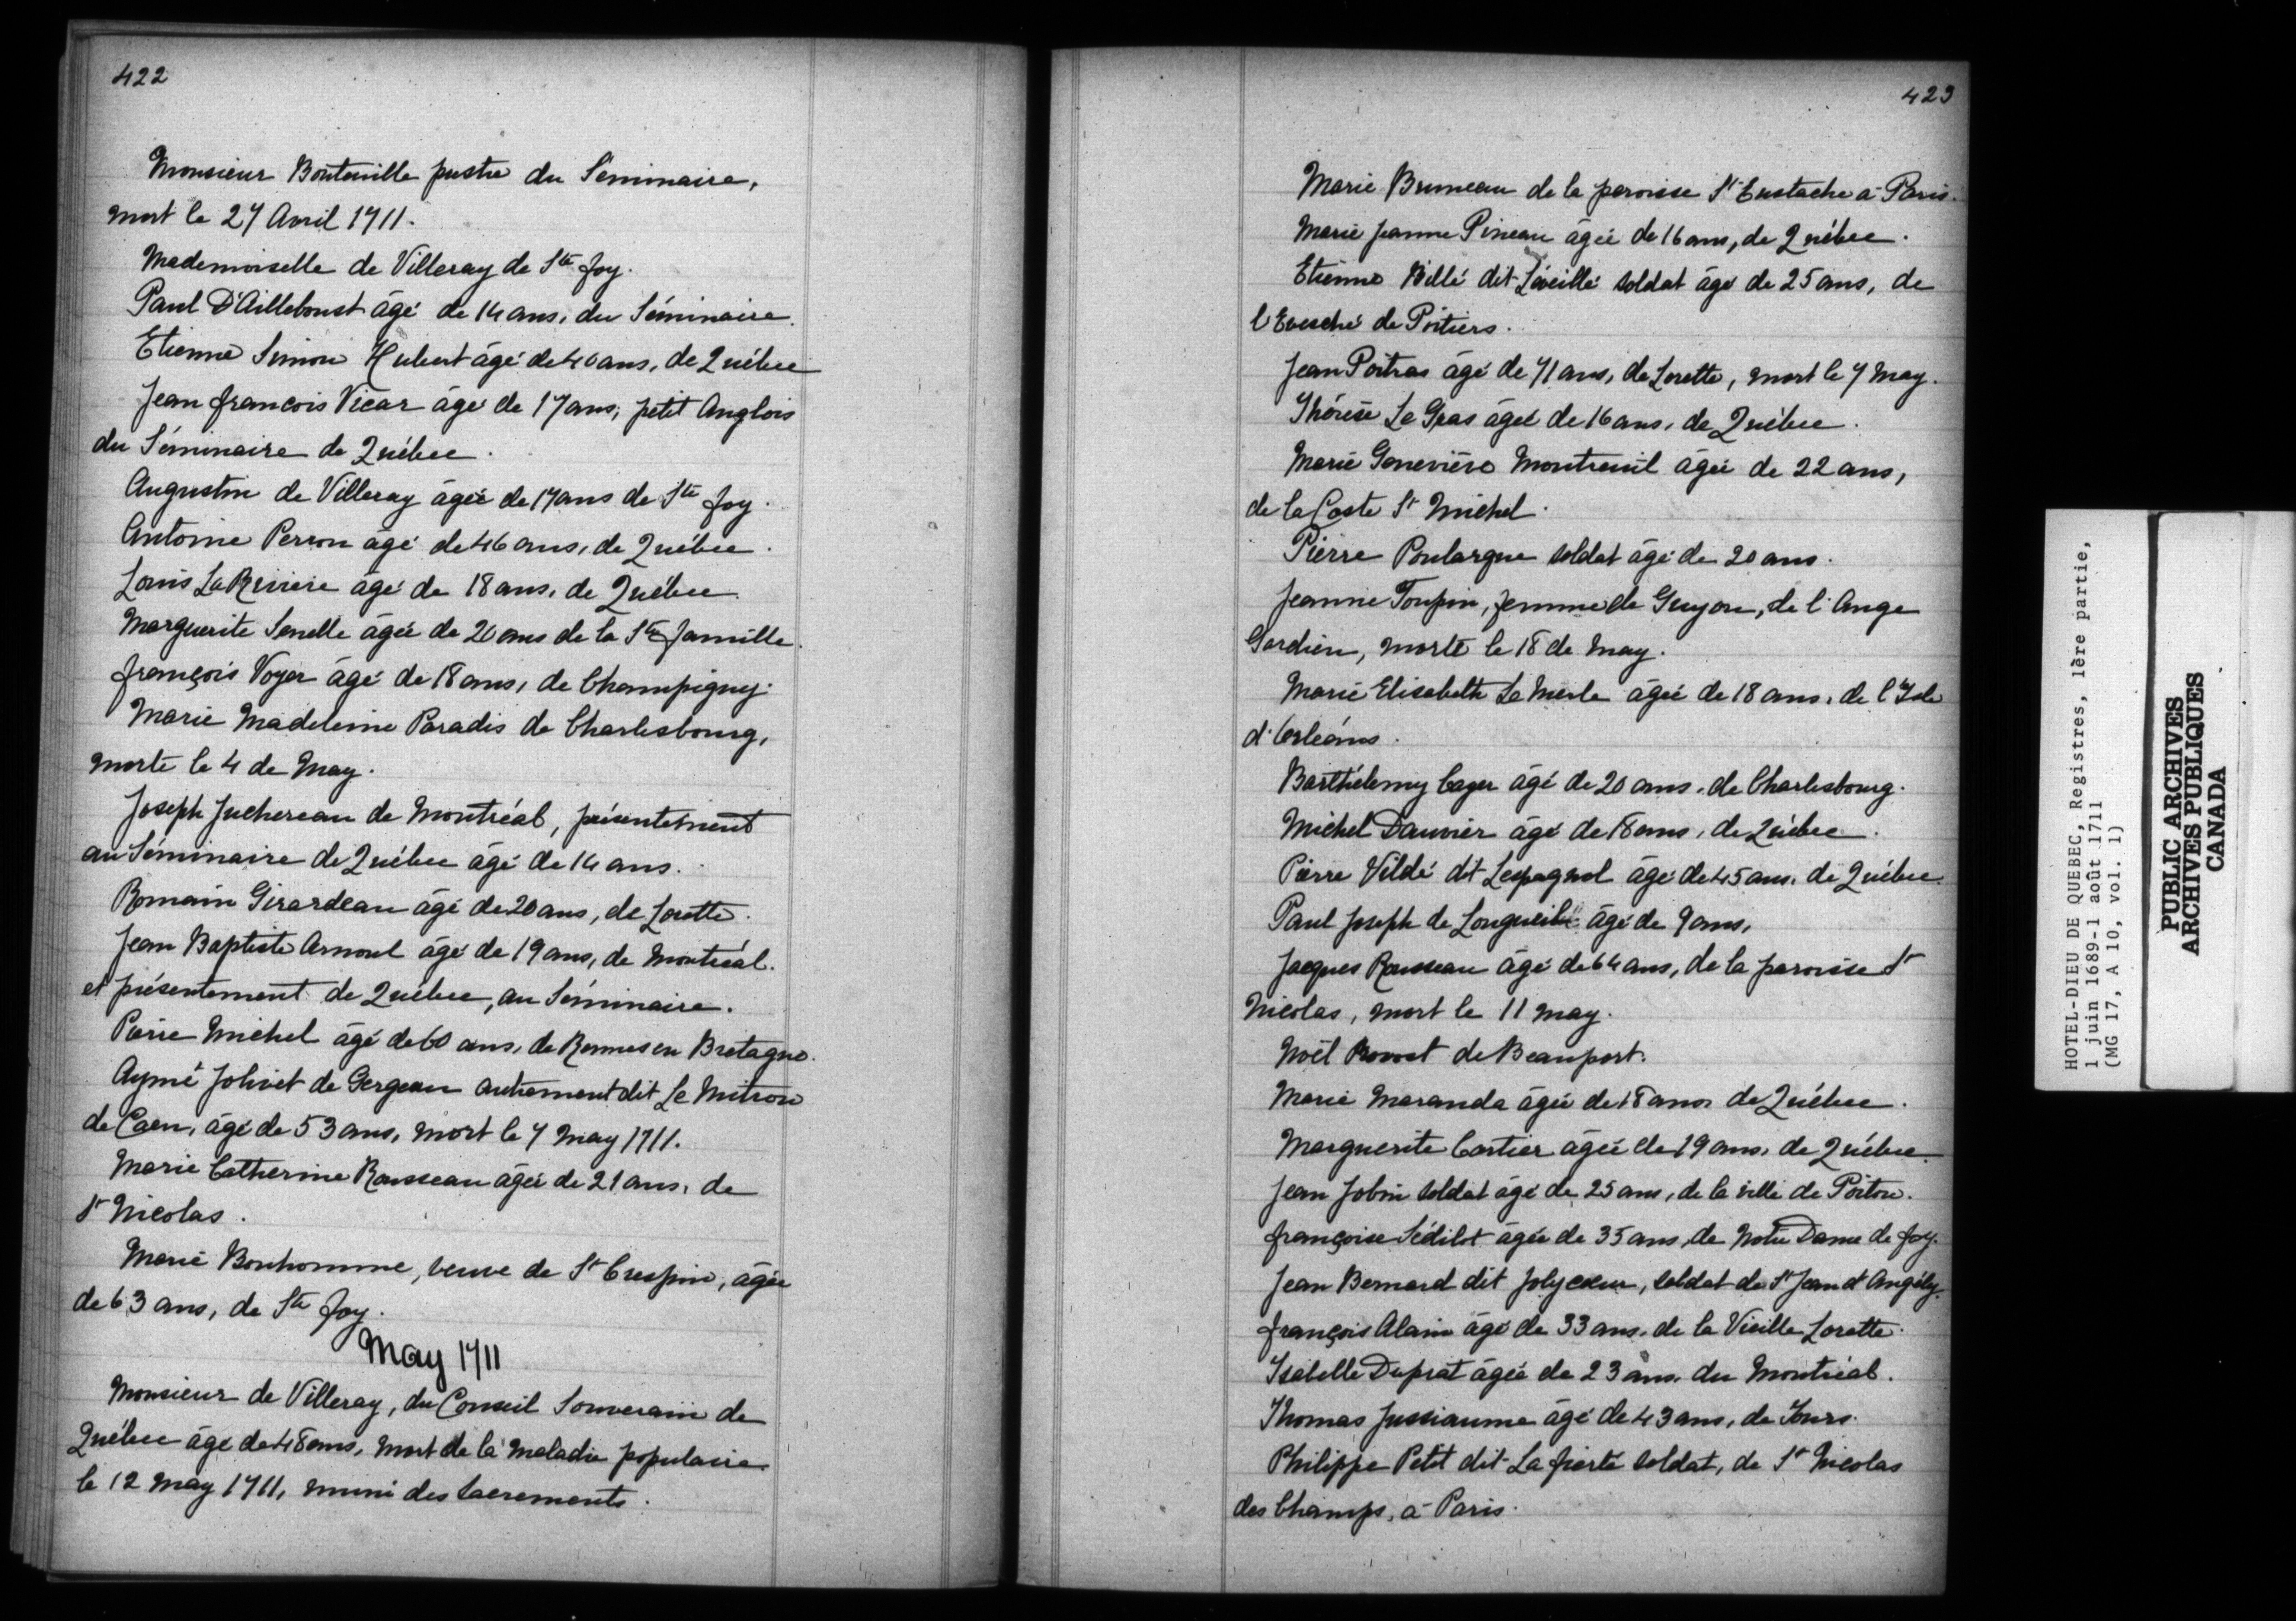 422
Monsieur Bouteville prestre du Séminaire,
mort le 27 Avril 1711.
Mademoiselle de Villeray de Ste Foy.
Paul D'Ailleboust âgé de 14 ans, du Séminaire.
Etienne Simon Hubert âgé de 40 ans, de Québec
Jean francois Vicar âgé de 17 ans, petit Anglois
du Séminaire de Québec.
Augustin de Villeray âgée de 17 ans de Ste Foy.
Antoine Perron âgé de 46 ans, de Québec.
Louis LaRiviere âgé de 18 ans, de Québec.
Marguerite Senelle âgée de 20 ans de la Ste famille.
françois Voyer âgé de 18 ans, de Champigny.
Marie Madeleine Paradis de Charlesbourg,
morte le 4 de May.
Joseph Juchereau de Montréal, présentement
au Séminaire de Québec âgé de 14 ans.
Romain Girardeau âgé de 20 ans, de Lorette.
Jean Baptiste Arnoul âgé de 19 ans, de Montréal.
et présentement de Québec, au Séminaire.
Pierre Michel âgé de 60 ans, de Rennes en Bretagne.
Aymé Jolivet de Gergeau autrement dit Le Mitron
de Caen, âgé de 53 ans, mort le 7 May 1711.
Marie Catherine Rousseau âgée de 21 ans, de
St Nicolas.
Marie Bonhomme, veuve de St Crespin, âgée
de 63 ans, de Ste Foy.
May 1711
Monsieur de Villeray, du Conseil Souverain de
Québec âgé de 48 ans, mort de la maladie populaire.
le 12 May 1711, muni des sacrements.
423
Marie Bruneau de la paroisse St Eustache à Paris.
Marie Jeanne Pineau âgée de 16 ans, de Québec.
Etienne Billé dit Léveillé soldat âgé de 25 ans, de
l'Evesché de Poitiers.
Jean Poitras âgé de 71 ans, de Lorette, mort le 7 May.
Thérèse Le Gras âgée de 16 ans, de Québec.
Marie Geneviève Montreuil âgée de 22 ans,
de la Coste St Michel.
Pierre Poulargue soldat âgé de 20 ans.
Jeanne Toupin, femme de Guyon, de l'Ange
Gardien, morte le 18 de May.
Marie Elisabeth Le Merle âgée de 18 ans, de l'Isle
d'Orléans.
Barthélemy Coger âgé de 20 ans, de Charlesbourg.
Michel Dauvier âgé de 18 ans, de Québec.
Pierre Vildé dit Lespagnol âgé de 45 ans, de Québec.
Paul Joseph de Longueil âgé de 9 ans,
Jacques Rousseau âgé de 64 ans, de la paroisse St
Nicolas, mort le 11 May.
Noël Provost de Beauport.
Marie Maranda âgée de 18 ans de Québec.
Marguerite Cartier âgée de 19 ans, de Québec.
Jean Jobin soldat âgé de 25 ans, de la ville de Poitou.
françoise Sédilot âgée de 35 ans, de Notre Dame de Foy.
Jean Bernard dit Jolycœur, soldat de St Jean d'Angély.
françois Alain âgé de 33 ans, de la Vieille Lorette.
Isabelle Duprat âgée de 23 ans, du Montréal.
Thomas Jussiaume âgé de 43 ans, de Tours.
Philippe Petit dit La fierté soldat, de St Nicolas
des Champs, à Paris.
HOTEL-DIEU DE QUEBEC, Registres, 1ère partie,
1 juin 1689-1 août 1711
(MG 17, A 10, vol. 1)
PUBLIC ARCHIVES
ARCHIVES PUBLIQUES
CANADA